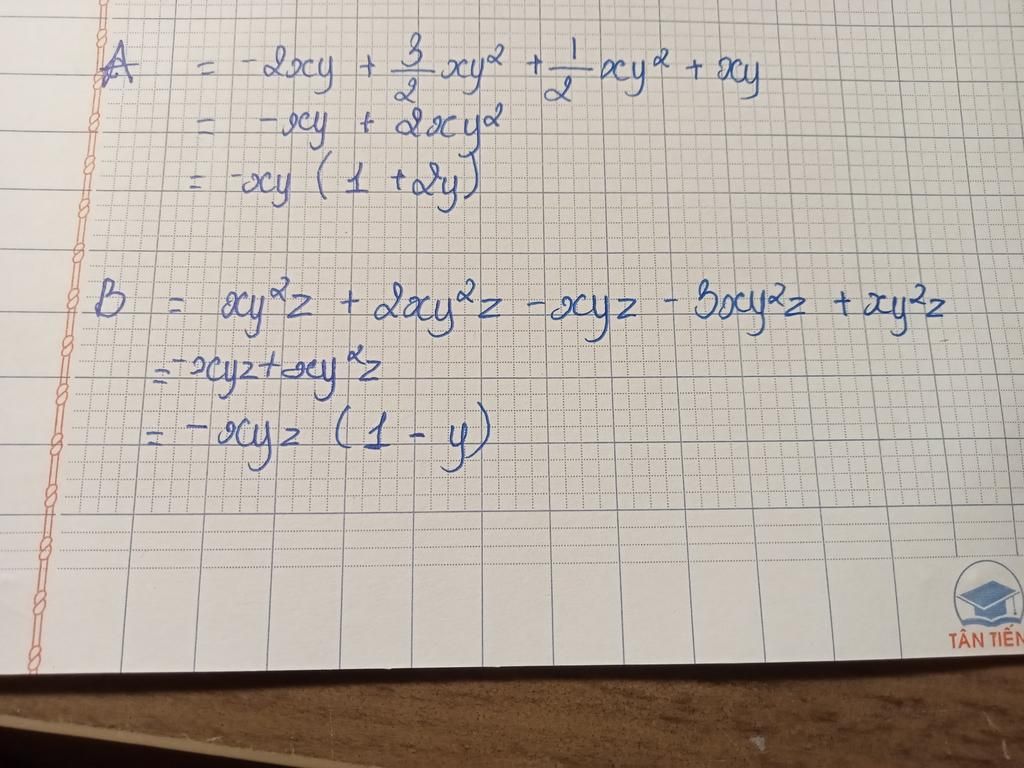 A = -2xy + 3/2 xy² + 1/2 xy² + xy
= -xy + 2xy²
= -xy ( 1 + 2y)
B = xy²z + 2xy²z - xyz - 3xy²z + xy²z
= -xyz + xy²z
= - xyz ( 1 - y)
TÂN TIẾN